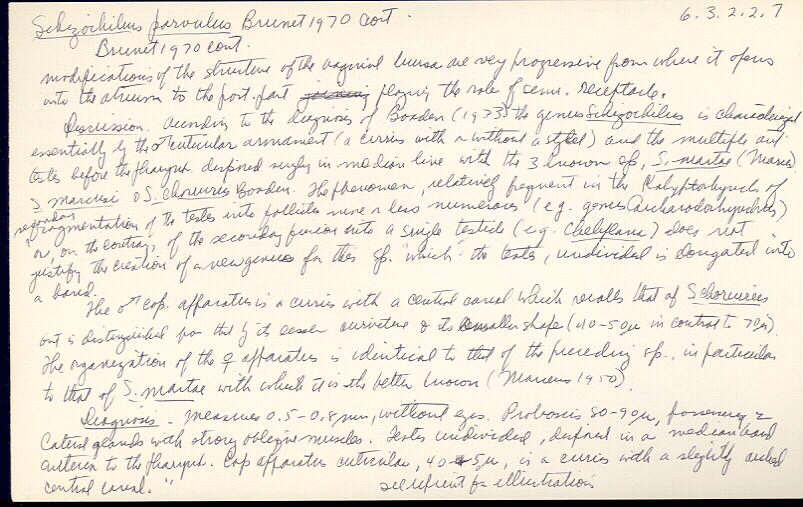 Schizochilus parvulus Brunet 1970 cont.
6.3.2.2.7
Brunet 1970 cont.
modifications of the structure of the vaginal bursa are very progressive from where it opens
into the atrium to the post. part playing the role of sem. receptacle.
Discussion. According to the diagnosis of Boaden (1973) the genus Schizochilus is characterized
essentially by the ♂ cuticular armament (a cirrus with or without a stylet) and the multiple
testes before the pharynx disposed singly in median line with the 3 known sp., S. martae (Marcus)
S. marcusi & S. choriurus Boaden. The phenomenon, relatively frequent in the Kalyptorhynch of
regarding fragmentation of the testes into follicles more or less numerous (e.g. genus
or, on the contrary, of the secondary fusion into a single testicle (e.g. Cheliplana) does not
justify the creation of a new genus for this sp. "which" the testes, undivided is elongated into
a band.
The ♂ cop. apparatus is a cirrus with a central canal which recalls that of S. choriurus
but is distinguished from that by its lesser curvature & its smaller shape (40-50µ in contrast to 70µ).
The organization of the ♀ apparatus is identical to that of the preceding sp., in particular
to that of S. martae with which it is the better known (Marcus 1950).
Diagnosis. - Measures 0.5-0.8 mm, without eyes. Proboscis 80-90µ, possessing 2
lateral glands with strong oblique muscles. Testes undivided, disposed in a median band
anterior to the pharynx. Cop apparatus cuticular, 40 5µ, is a cirrus with a slightly arched
central canal."
see reprint for illustrations